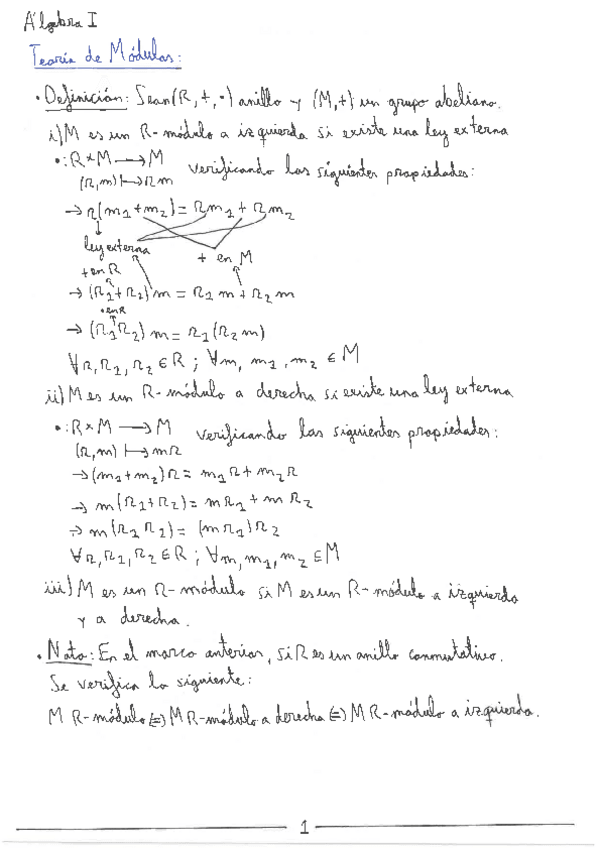 Álgebra I
Teoría de Módulos:
· Definición: Sean (R, +, ·) anillo y (M, +) un grupo abeliano.
i) M es un R-módulo a izquierda si existe una ley externa
· : R × M ⟶ M verificando las siguientes propiedades:
(r, m) ⟼ r m
→ r(m₁ + m₂) = r m₁ + r m₂
ley externa + en M
+ en R
→ (r₁ + r₂) m = r₁ m + r₂ m
· en R
→ (r₁ r₂) m = r₁ (r₂ m)
∀ r, r₁, r₂ ∈ R ; ∀ m, m₁, m₂ ∈ M
ii) M es un R-módulo a derecha si existe una ley externa
· : R × M ⟶ M verificando las siguientes propiedades:
(r, m) ⟼ m r
→ (m₁ + m₂) r = m₁ r + m₂ r
→ m (r₁ + r₂) = m r₁ + m r₂
→ m (r₁ r₂) = (m r₁) r₂
∀ r, r₁, r₂ ∈ R ; ∀ m, m₁, m₂ ∈ M
iii) M es un R-módulo si M es un R-módulo a izquierda
y a derecha.
· Nota: En el marco anterior, si R es un anillo conmutativo.
Se verifica lo siguiente:
M R-módulo ⇔ M R-módulo a derecha ⇔ M R-módulo a izquierda.
1